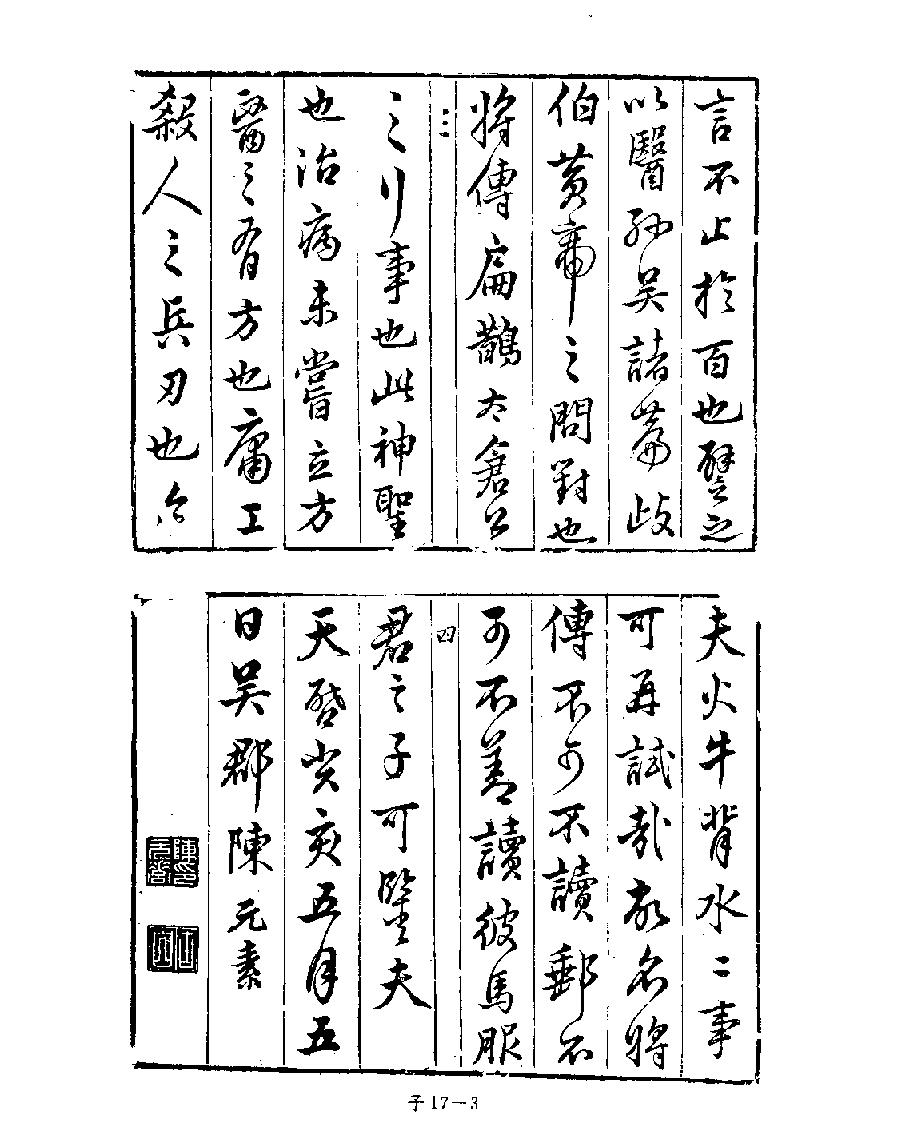 言不止於百也譬之
以醫孫吳諸篇岐
伯黃帝之問對也
將傳扁鵲太倉公
三
之行事也此神聖
也治病未嘗立方
醫之有方也庸工
殺人之兵刃也今
夫火牛背水二事
可再試哉故名將
傳不可不讀鄴不
可不善讀彼馬服
四
君之子可鑒夫
天啓癸亥五月五
日吳郡陳元素
子17—3